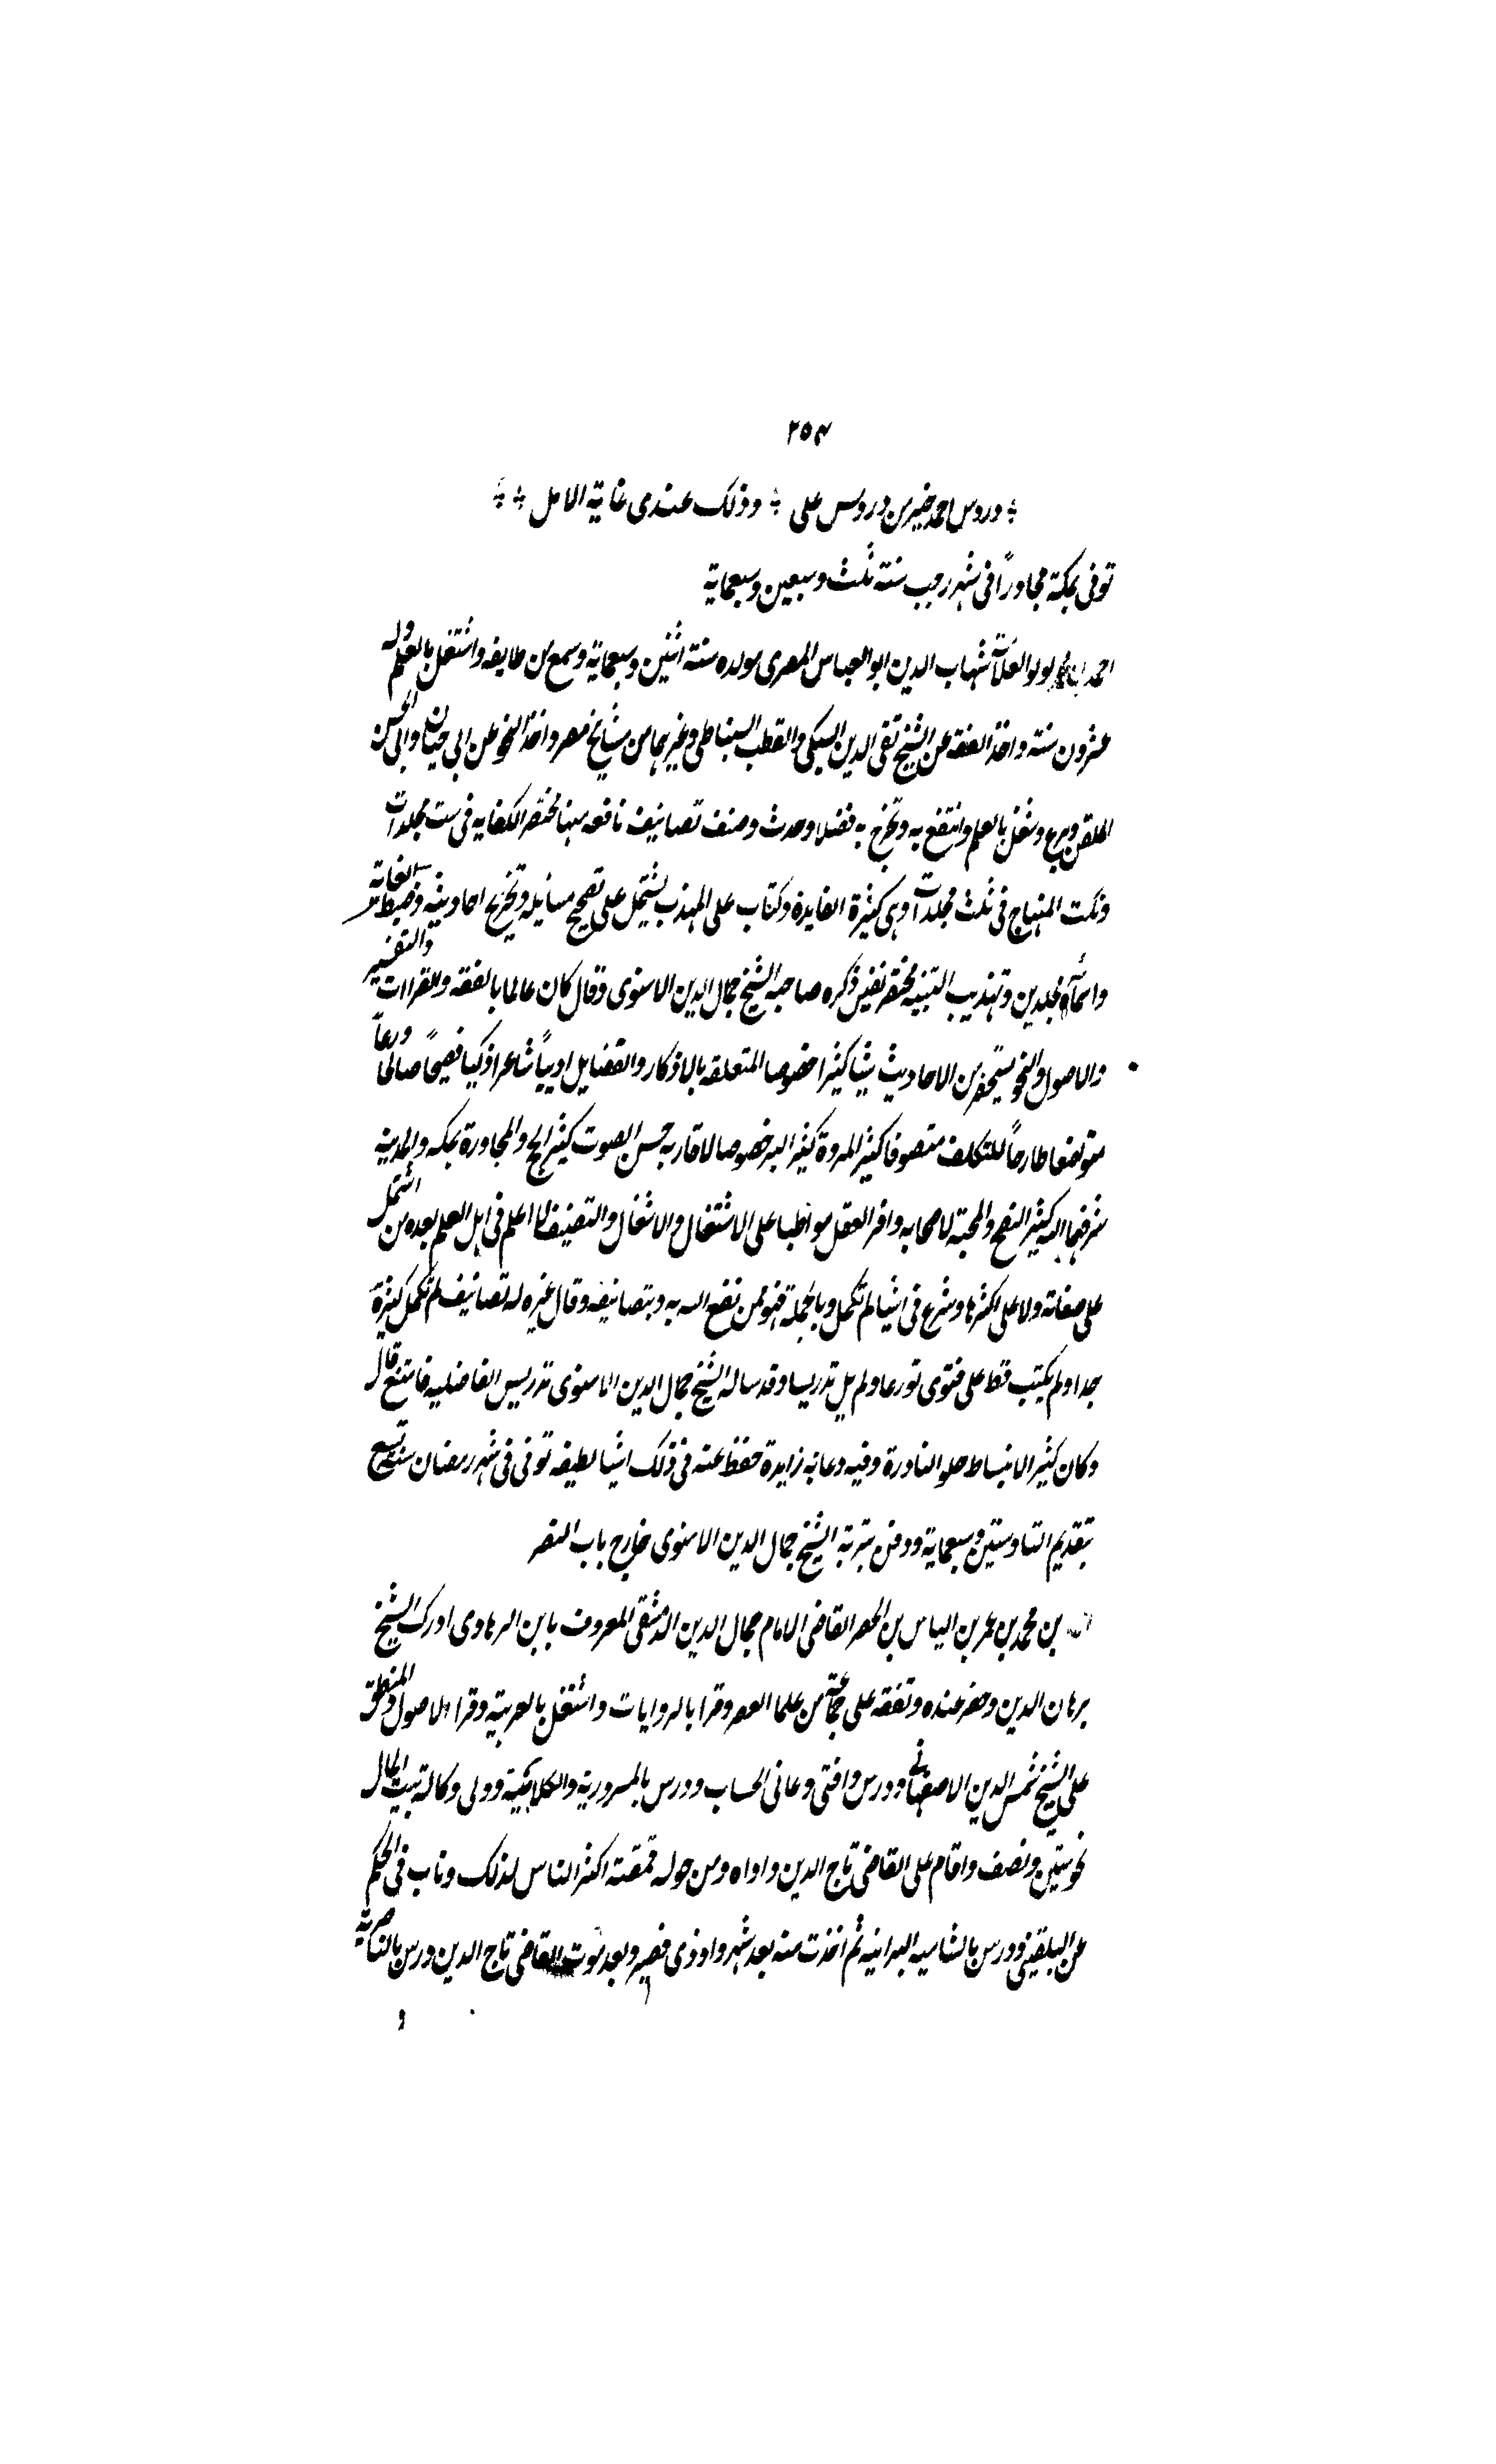 ٢٥٣
دروس احمد خير من دروس على وذلك عندى غاية الامل
توفى بمكة مجاوراً فى شهر رجب سنة ثلث وسبعين وسبعماية
احمد بن لولو العلامة شهاب الدين ابو العباس المصرى مولده سنة اثنين وسبعماية وسمع من طايفه واشتغل بالعلم وله
عشرون سنة واخذ الفقه عن الشيخ تقى الدين السبكى والقطب السنباطى وغيرهما من مشايخ مصر واخذ النحو عن ابى حيان وابى الحسن
الملقن وبرع وشغل بالعلم وانتفع به وتخرج به فضلا وحدث وصنف تصانيف نافعه منها مختصر الكفايه فى ست مجلدات
ونكت المنهاج فى ثلث مجلدات وهى كثيرة الفايدة وكتاب على المهذب يشتمل على تصحيح مسايله وتخريج احاديثه وضبط لغاته
واسمآئه مجلدين وتهذيب التنبيه مختصر نفيس ذكره صاحبه الشيخ جمال الدين الاسنوى وقال كان عالما بالفقه والقراات والتفسير
والاصول والنحو يستحضر من الاحاديث شيئا كثيرا خصوصا المتعلقه بالاذكار والفضايل اديباً شاعرا ذكيا فصيحاً صالحا ورعاً
متواضعا طارحاً للتكلف متصوفا كثير المروة كثير البر خصوصا لاقاربه حسن الصوت كثير الحج والمجاورة بمكه والمدينه
شرفهما الله كثير النصح والمحبة لاصحابه وافر العقل مواظبا على الاشتغال والاشغال والتصنيف لا اعلم فى اهل العلم بعده من اشتمل
على صفاته ولا على اكثرها وشرع فى اشيا لم تكمل وبالجملة فهو ممن نفع الله به وبتصانيفه وقال غيره له تصانيف لم تكمل كثيرة
جدا ولم يكتب قط على فتوى تورعا ولم يل تدريسا وقد ساله الشيخ جمال الدين الاسنوى تدريس الفاضليه فامتنع قال
وكان كثير الانبساط حلو النادرة وفيه دعابه زايدة حفظ عنه فى ذلك اشيا لطيفه توفى فى شهر رمضان سنة تسع
بتقديم التا وستين وسبعماية ودفن بتربة الشيخ جمال الدين الاسنوى خارج باب النصر
بن محمد بن عمر بن الياس بن الخضر القاضى الامام جمال الدين الدمشقى المعروف بابن الرهاوى ادرك الشيخ
برهان الدين وحضر عنده وتفقه على جماعة من علما العصر وقرا بالروايات واشتغل بالعربية وقرا الاصول والمنطق
على الشيخ شمس الدين الاصفهانى ودرس وافتى وعانى الحساب ودرس بالمسرورية والكلاسية وولى وكالة بيت المال
نحو سنتين ونصف واقام على القاضى تاج الدين واواه ومن حوله فمقته اكثر الناس لذلك وناب فى الحكم
عن البلقينى ودرس بالشاميه البرانيه ثم اخذت منه بعد شهر واوذى فصبر وبعد موت القاضى تاج الدين درس بالناصرية
و